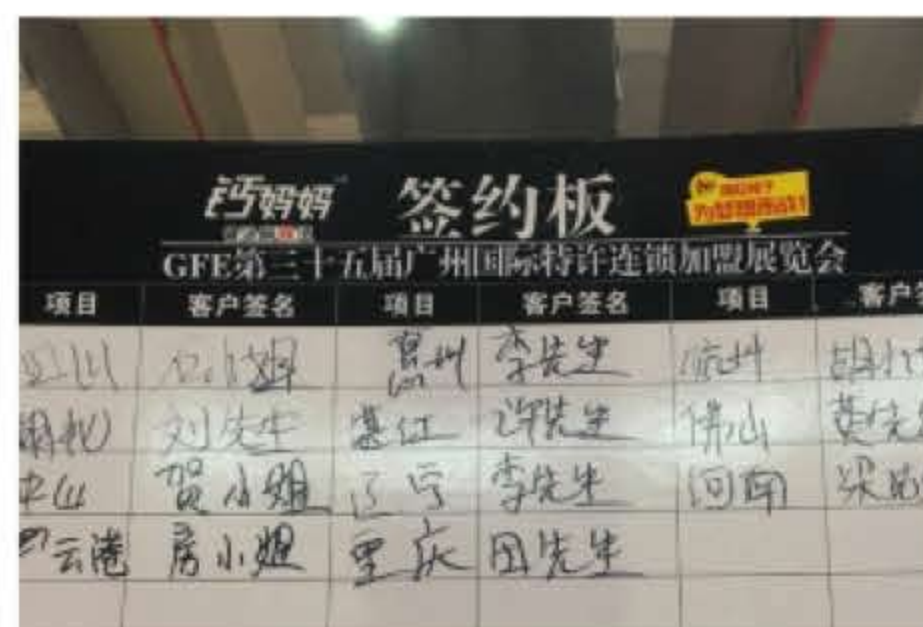 钙妈妈 签约板
GFE第三十五届广州国际特许连锁加盟展览会
项目 客户签名 项目 客户签名 项目 客户
小姐 惠州 李先生 杭州
湖北 刘先生 湛江 许先生 佛山 黄先
中山 贺小姐 辽宁 李先生 河南 梁
云港 房小姐 重庆 田先生